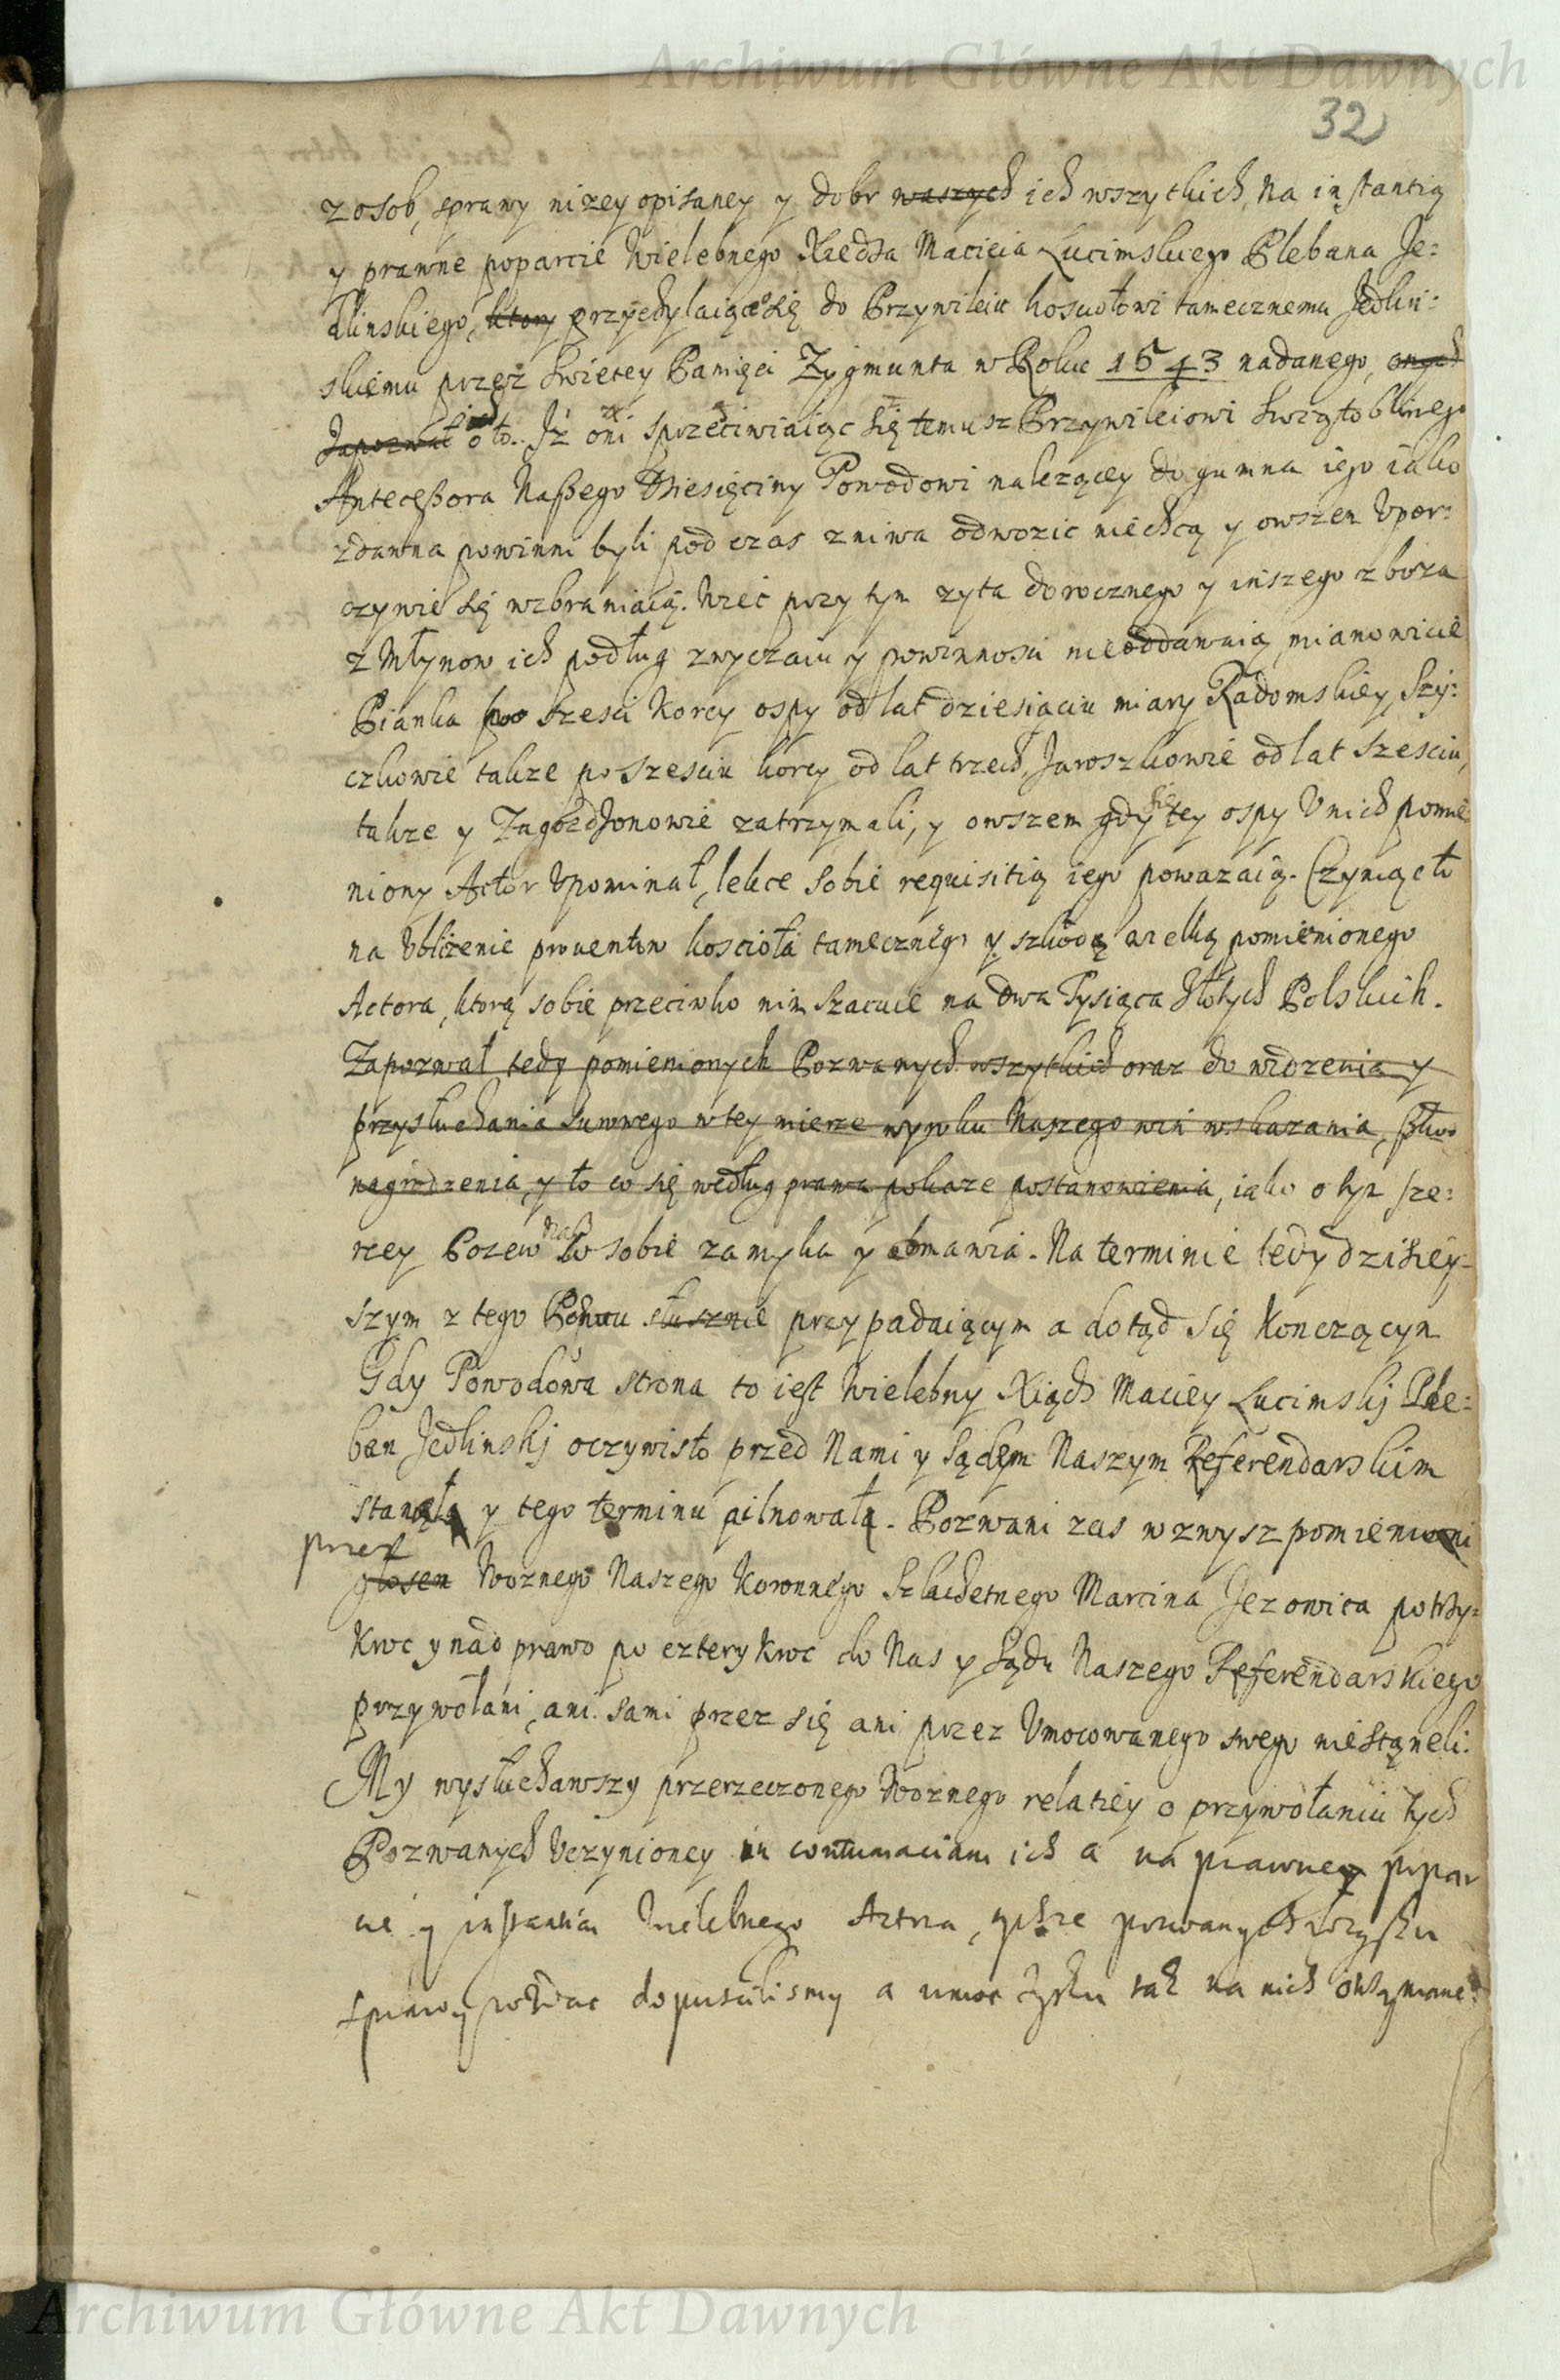 Archiwum Główne Akt Dawnych
32
z osob, sprawy nizey opisaney y dobr waszych ich wszytkich, Na instantią
y prawne poparcie Wielebnego Xiedza Macieia Lucimskiego Plebana Je-
dlinskiego, ktory przychylaiącego się do Przywileiu kosciołowi tamecznemu Jedlin-
skiemu przez swietey Pamięci Zygmunta w Roku 1543 nadanego, onych
Zapozwał o to. Jż oni sprzeciwiaiąc się temusz Przywileiowi Swiętobliwego
Antecessora Naszego Dziesięciny Powodowi nalezącey do gumna iego iako
zdawna powinni byli pod czas zniwa odwozic niechcą y owszem Vpor-
czywie się wzbraniaią. Wiec przy tym zyta dorocznego y inszego zboza
z Młynow ich podług zwyczaiu y powinnosci nieoddawaią, mianowicie
Pianka po szesci Korcy ospy od lat dziesiąciu miary Radomskiey, Szy-
czkowie takze po szesciu korcy od lat trzech, Jaroszkowie od lat szesciu,
takze y Zagozdzonowie zatrzymali, y owszem gdy się tey ospy Vnich pomie
niony Actor Vpominał, lekce sobie requisitią iego powazaią. Czyniąc to
na Vbliżenie prouentow kościoła tamecznego y szkodę wielką pomienionego
Actora, ktorą sobie przeciwko nim szacuie na dwa Tysiąca Złotych Polskich.
Zapozwał tedy pomienionych Pozwanych wszytkich oraz do widzenia y
przysłuchania surowego w tey mierze wyroku Naszego win wskazania, szkod
nagrodzenia, y to co się według prawa pokaze postanowienia, iako o tym sze-
rzey Pozew Nasz w sobie zamyka y obmawia. Na terminie tedy dzisiey-
szym z tego Pozwu słusznie przypadaiącym a dotąd się Konczącym
Gdy Powodowa strona to iest Wielebny Xiądz Maciey Lucimskj Ple-
ban Jedlinskj oczywisto przed Nami y Sądem Naszym Referendarskim
staneła y tego terminu pilnowała. Pozwani zas wzwysz pomienieni
przez
głosem Woznego Naszego Koronnego Szlachetnego Marcina Jezowita po trzy-
kroc y nad prawo po czterykroc do Nas y Sądu Naszego Referendarskiego
przywołani, ani sami przez się ani przez Vmocowanego swego nie stąneli.
My wysłuchawszy przerzeczonego Woznego relatiey o przywołaniu tych
Pozwanych Vczynioney in contumaciam ich a na prawne popar
cie y instantią Wielebnego Actora, tychze pozwanych w zysku
sprawy wzdac dopuscilismy a wmoc zysku tak na nich otrzymane-
Archiwum Główne Akt Dawnych